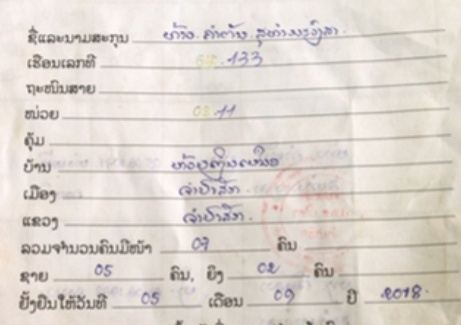 ຊື່ແລະນາມສະກຸນ ທ້າວ ຄໍາຕັນ
ເຮືອນເລກທີ 133
ຖະໜົນສາຍ
ໜ່ວຍ 11
ຄຸ້ມ
ບ້ານ
ເມືອງ ຈໍາປາສັກ
ແຂວງ ຈໍາປາສັກ.
ລວມຈຳນວນຄົນມີໜ້າ 07 ຄົນ
ຊາຍ 05 ຄົນ, ຍິງ 02 ຄົນ
ຢັ້ງຢືນໃຫ້ວັນທີ 05 ເດືອນ 09 ປີ 2018.